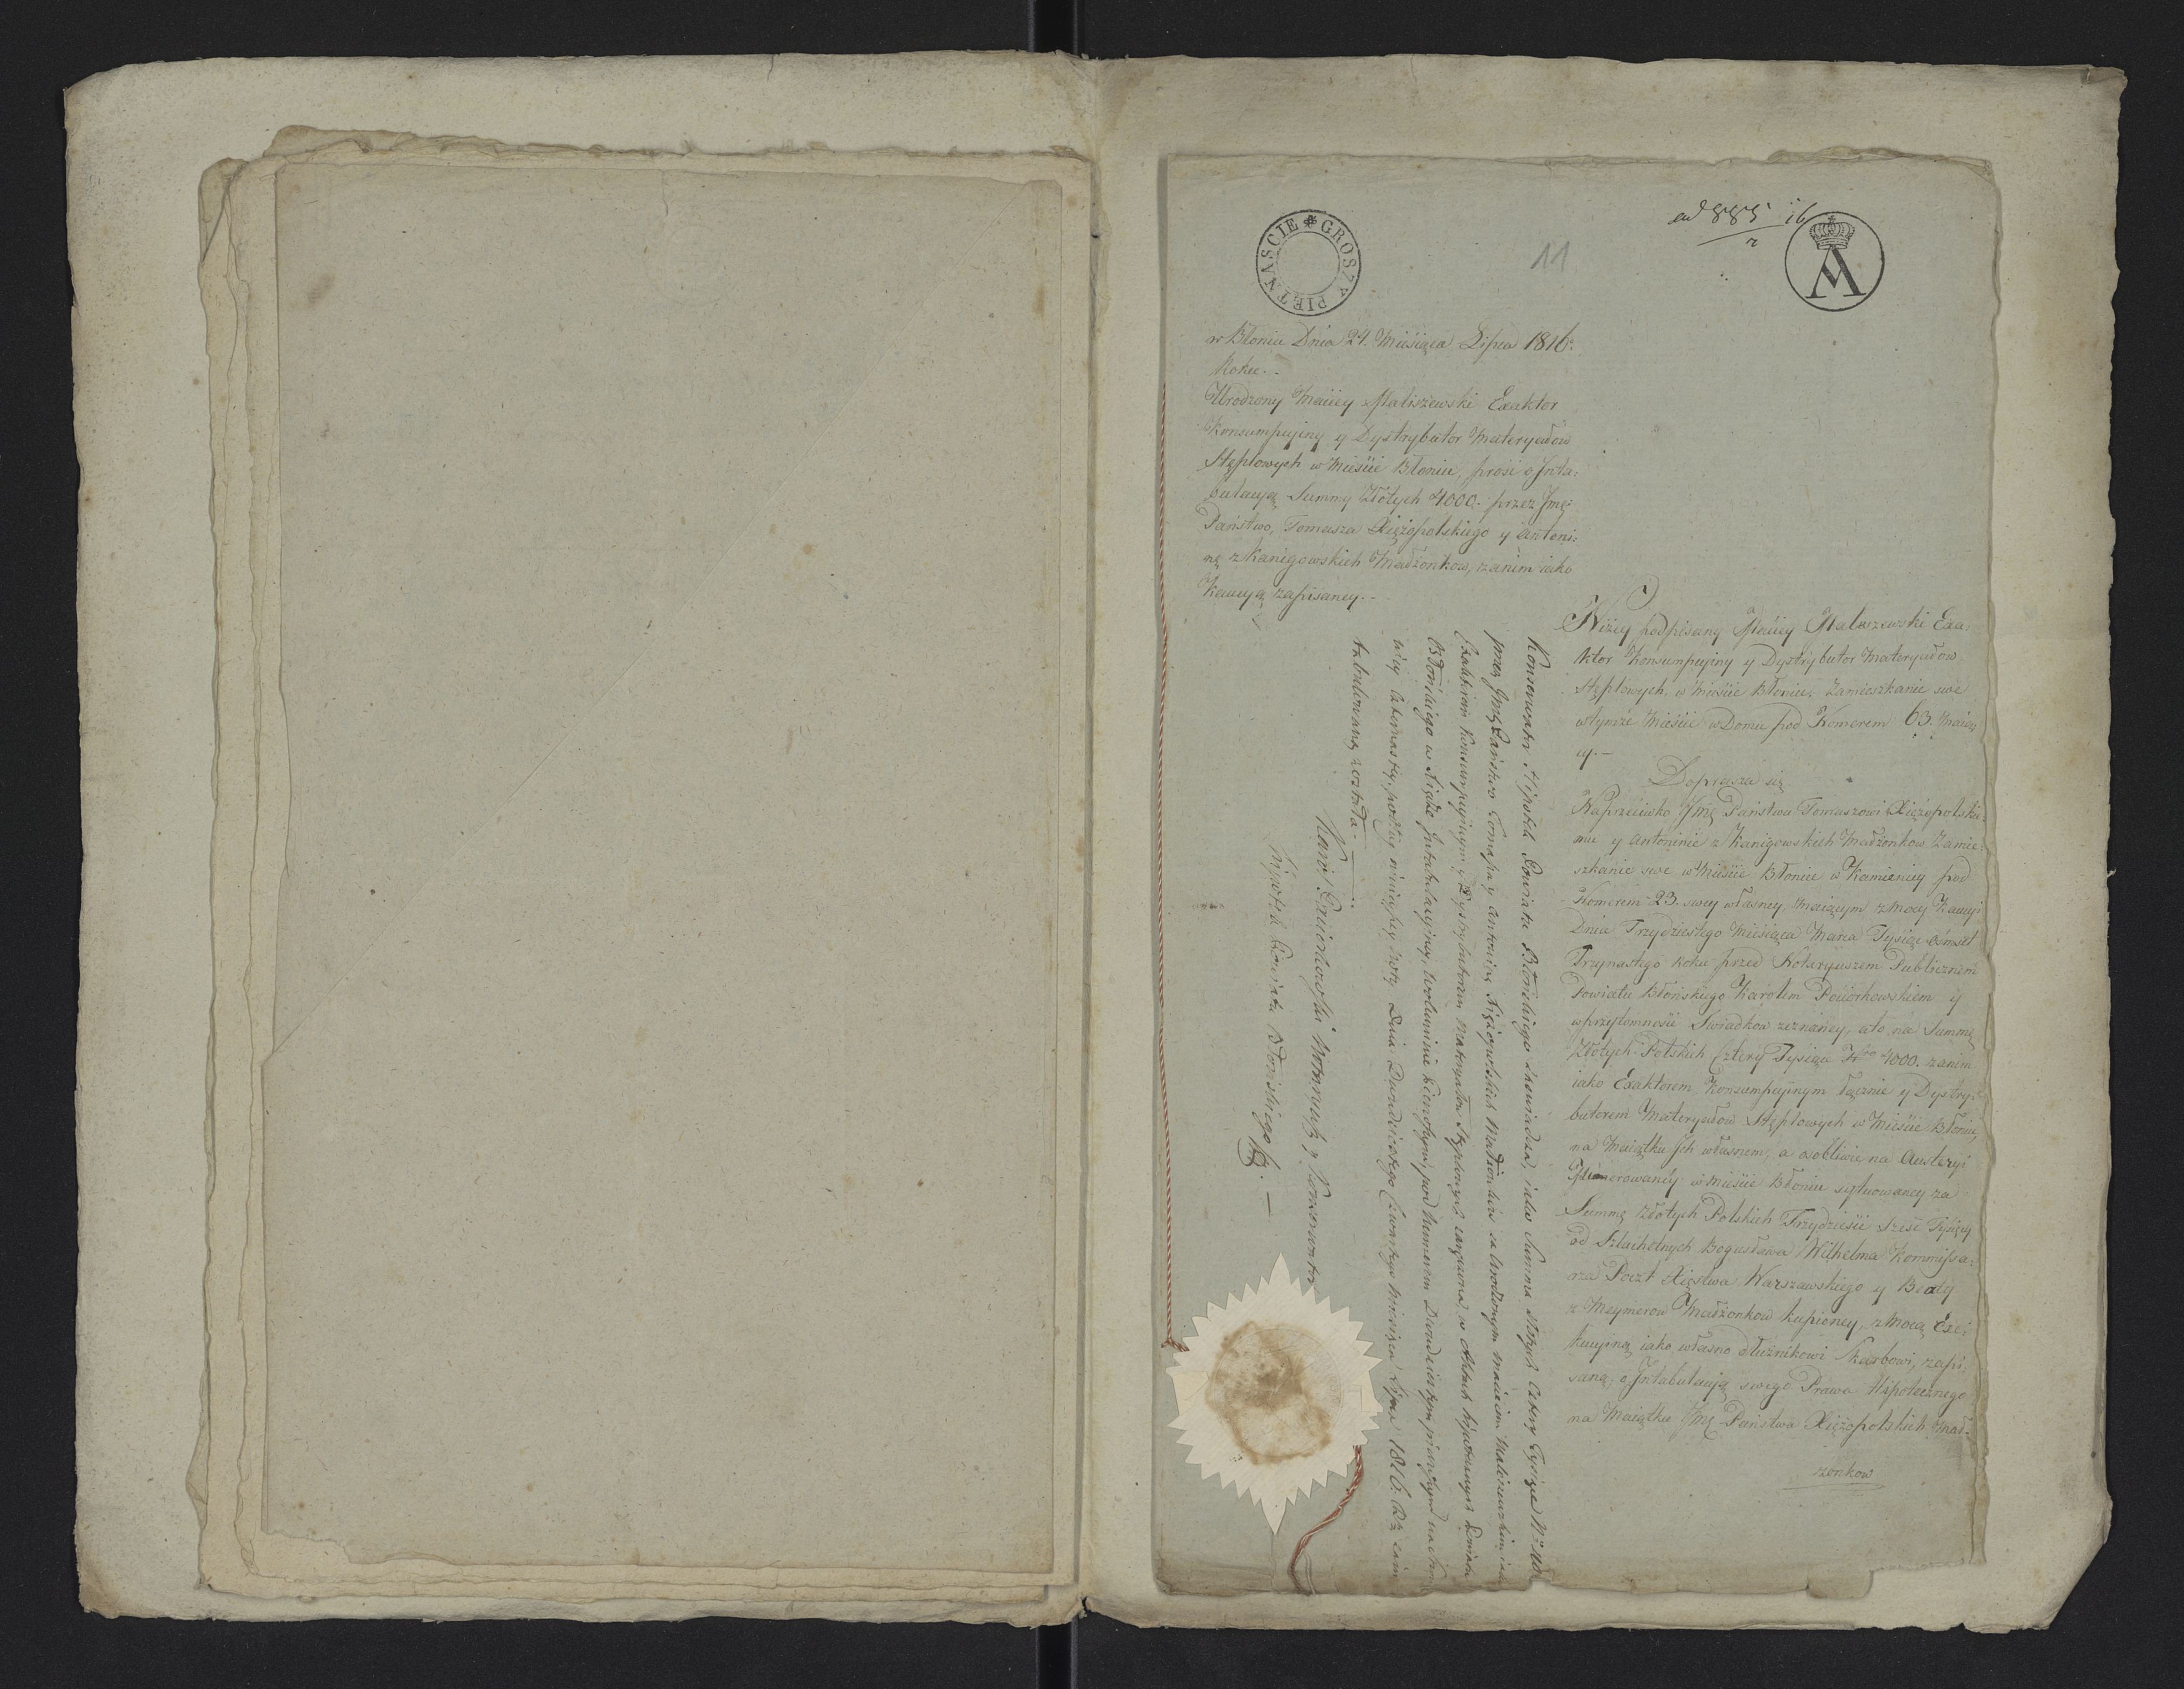 GROSZY PIĘTNAŚCIE
11
ad 885 16
2
A
w Błoniu Dnia 24. Miesiąca Lipca 1816.
Roku.-
Urodzony Maciey Maliszewski Exaktor
Konsumpcyiny y Dystrybutor Materyałow
Stęplowych w Mieście Błoniu, prosi o Inta:
bulacyą Summy Złotych 4000. przez Jmę
Państwo, Tomasza Xiężopolskiego y Antoni:
nę z Kanigowskich Małżonkow, zanim iako
Kaucyą zapisaney.-
Niżey podpisany Maciey Maliszewski Exa:
ktor Konsumpcyiny y Dystrybutor Materyałow
Stęplowych, w Mieście Błoniu; Zamieszkanie swe
w tymże Mieście w Domu pod Numerem 63. Maiąc
y.-
Doprasza się
Naprzeciwko Jmę Państwu Tomaszowi Xiężopolskie:
mu y Antoninie z Kanigowskich Małżonkow Zamie:
szkanie swe w Mieście Błoniu w Kamienicy pod
Numerem 23. swey własney, maiącym z Mocy Kaucyi
Dnia Trzydziestego Miesiąca Marca Tysiąc ośmset
Trzynastego Roku przed Notaryuszem Publicznem
Powiatu Błońskiego Karolem Pciorkowskiem y
w przytomności Swiadkow zeznaney, ato na Summę
Złotych Polskich Cztery Tysiące 4000. zanim
iako Exaktorem Konsumpcyinym łącznie y Dystry:
butorem Materyałow Stęplowych w Mieście Błoniu,
na Maiątku Ich własnem, a osobliwie na Austeryi
Murowaney w Mieście Błoniu sytuowaney za
Summę Złotych Polskich Trzydzieści sześć Tysięcy
od Szlachetnych Bogusława Wilhelma Kommissa:
rza Poczt Xięstwa Warszawskiego y Beaty
z Meymerow Małżonkow kupioney, z Mocą Exe:
kucyiną iako własno dłużnikowi Skarbowi, zapi:
saną; o Intabulacyą swego Prawa Hipotecznego
na Maiątku Jmę Państwa Xiężopolskich Mał-
żonkow
Konserwator Hipotek Powiatu Błońskiego zaświadcza, iako Summa Złotych Cztery Tysiące
przez Jmę Państwo Tomasza y Antoninę Xiężopolskich Małżonków za Urodzonym Macieiem Maliszewskim iako
Exaktorem Konsumpcyinym y Dystrybutorem Materyałow Stęplowych w Aktach hipotecznych Powiatu
Błońskiego w Xiędze Intabulacyiney, Wolumenie pod Numerem Dwudziestym pierwszym na
czternastey, podług ninieyszey Noty Dnia Dwudziestego Czwartego Miesiąca Lipca 1816. Rz zain
tabulowaną została.-
Karol Pciorkowski Notaryusz y Konserwator
hipotek Powiatu Błońskiego